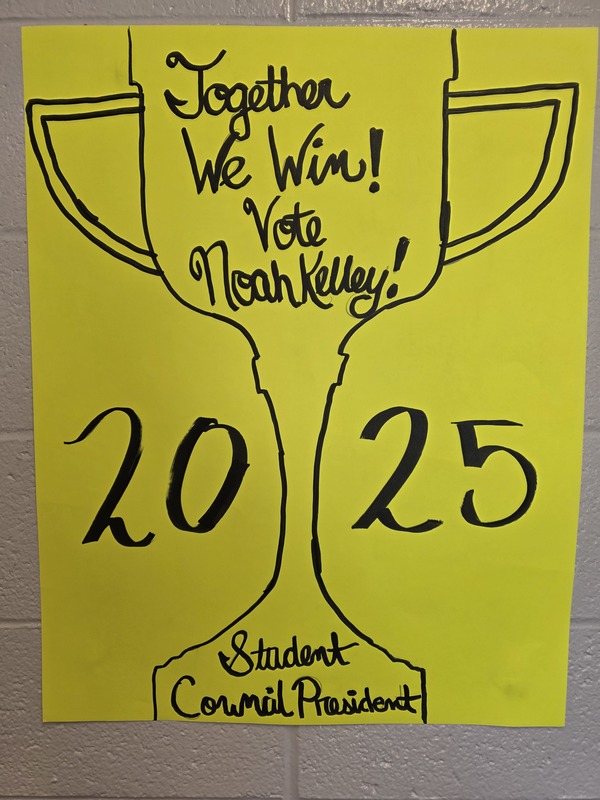 Together
We Win!
Vote
Noah Kelley!
20 25
Student
Council President